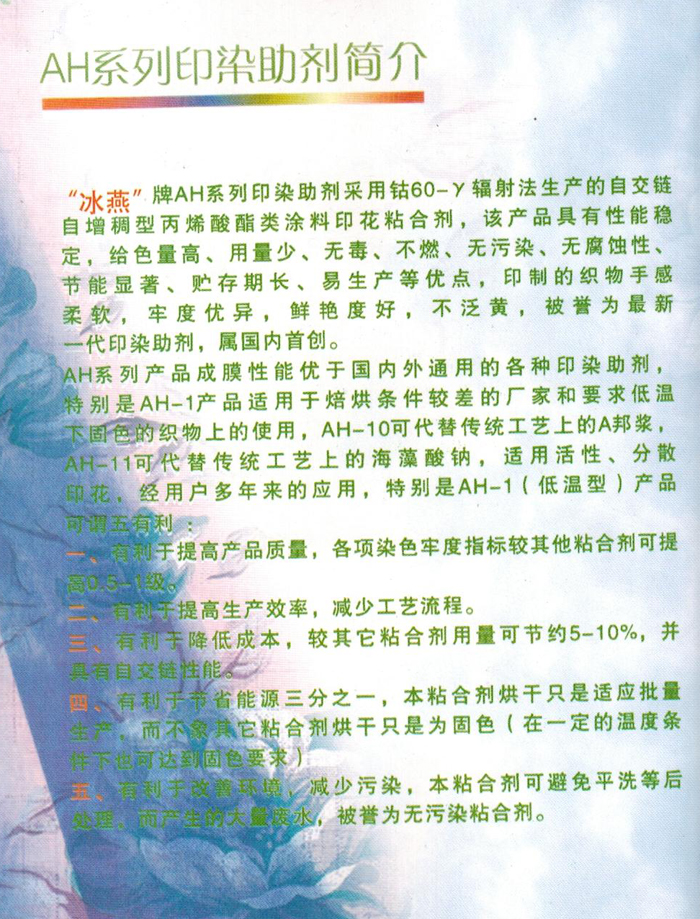 AH系列印染助剂简介
“冰燕”牌AH系列印染助剂采用钴60-γ辐射法生产的自交链
自增稠型丙烯酸酯类涂料印花粘合剂，该产品具有性能稳
定，给色量高、用量少、无毒、不燃、无污染、无腐蚀性、
节能显著、贮存期长、易生产等优点，印制的织物手感
柔软，牢度优异，鲜艳度好，不泛黄，被誉为最新
一代印染助剂，属国内首创。
AH系列产品成膜性能优于国内外通用的各种印染助剂，
特别是AH-1产品适用于焙烘条件较差的厂家和要求低温
下固色的织物上的使用，AH-10可代替传统工艺上的A邦浆，
AH-11可代替传统工艺上的海藻酸钠，适用活性、分散
印花，经用户多年来的应用，特别是AH-1（低温型）产品
可谓五有利：
一、有利于提高产品质量，各项染色牢度指标较其他粘合剂可提
高0.5-1级。
二、有利于提高生产效率，减少工艺流程。
三、有利于降低成本，较其它粘合剂用量可节约5-10%，并
具有自交链性能。
四、有利于节省能源三分之一，本粘合剂烘干只是适应批量
生产，而不象其它粘合剂烘干只是为固色（在一定的温度条
件下也可达到固色要求）
五、有利于改善环境，减少污染，本粘合剂可避免平洗等后
处理，而产生的大量废水，被誉为无污染粘合剂。